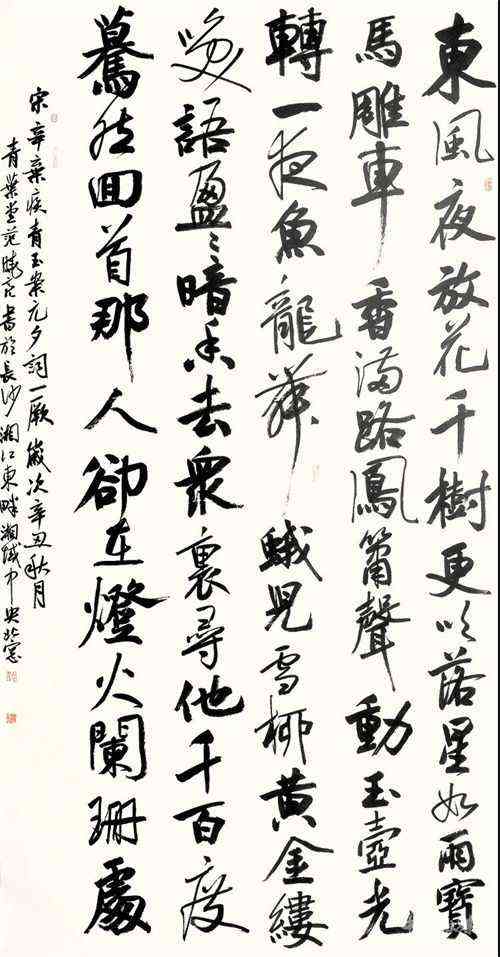 東風夜放花千樹更吹落星如雨寶
馬雕車香滿路鳳簫聲動玉壺光
轉一夜魚龍舞蛾兒雪柳黃金縷
笑語盈〻暗香去衆裏尋他千百度
驀然囬首那人卻在燈火闌珊處
宋辛棄疾青玉案元夕詞一厥歲次辛丑秋月
青葉堂范曉書於長沙湘江東畔湘域中央